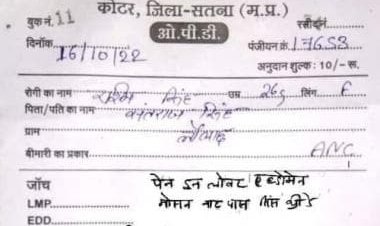 कोटर, जिला-सतना (म.प्र.)
बुक नं. 11 रसीद नं.
ओ.पी.डी.
दिनांक 16/10/22 पंजीयन क्र. 17653
अनुदान शुल्क: 10/- रू.
रोगी का नाम रश्मि सिंह उम्र 26 लिंग F
पिता/पति का नाम सिंह
ग्राम
बीमारी का प्रकार ANC
जाँच पेन इन लोवर एब्डोमेन
LMP. मोसन नाट पास
EDD.